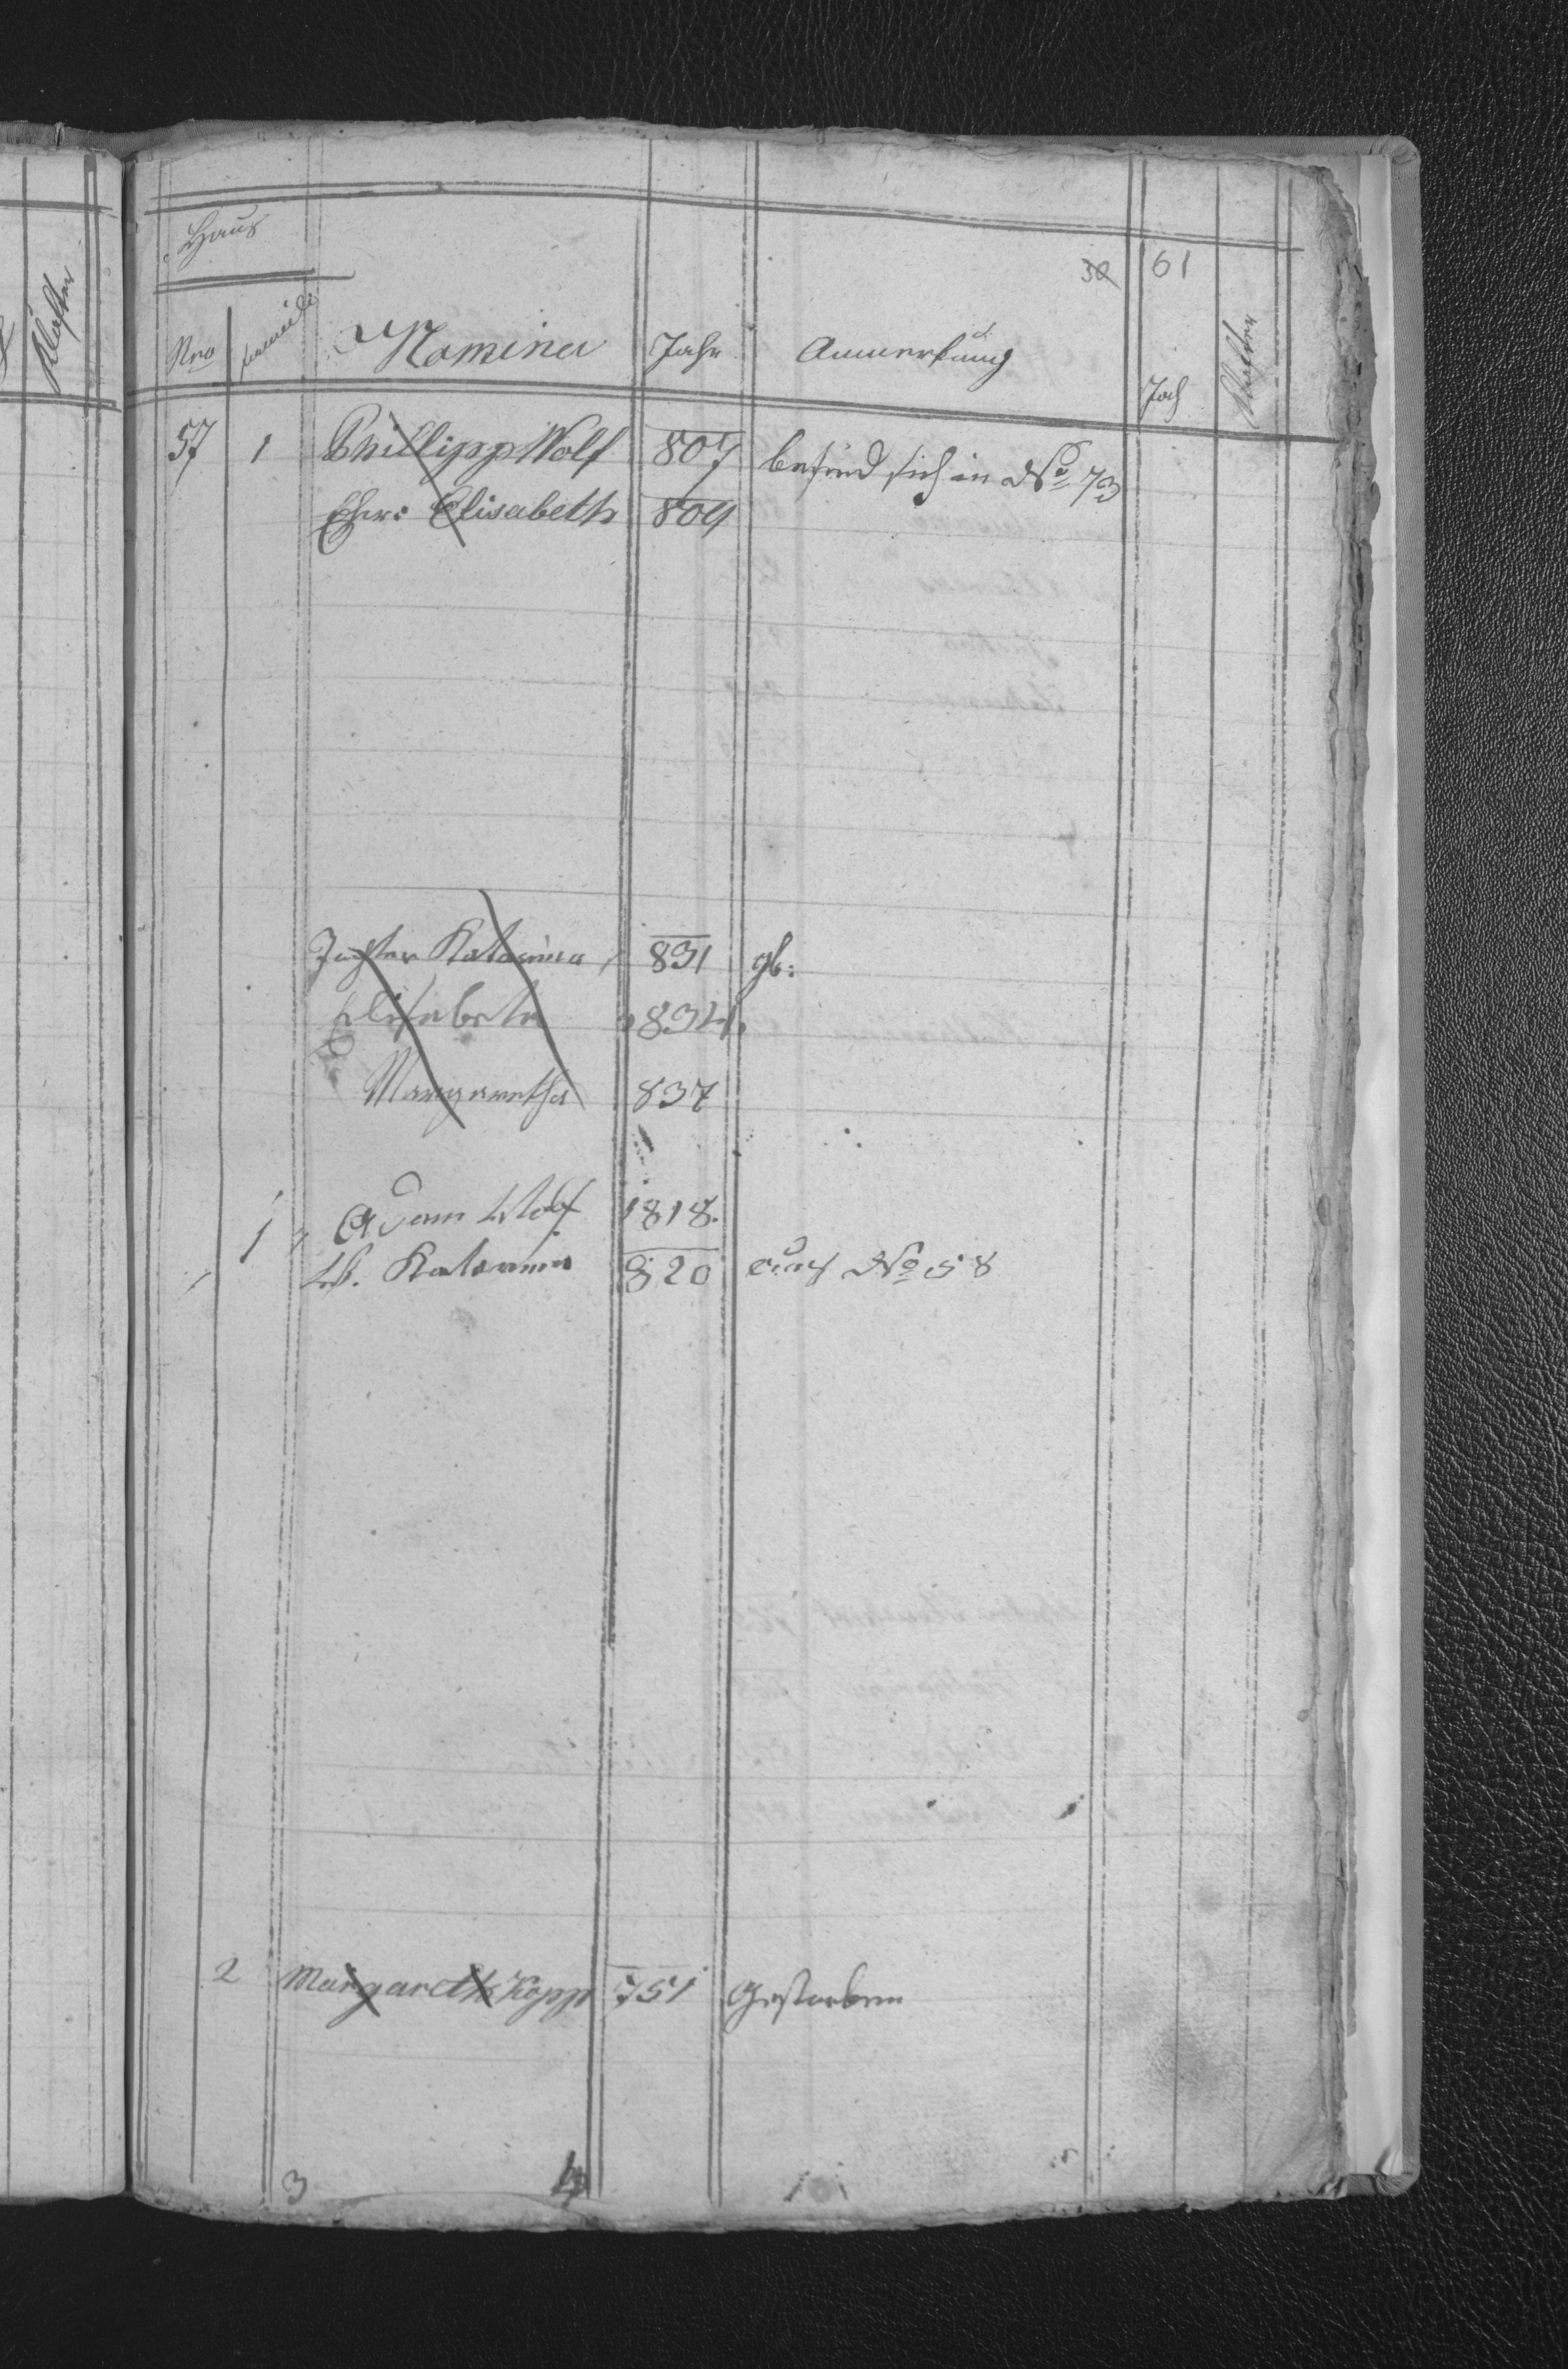 Klafter
Haus
30 61
Nro familie Nomina Jahr Anmerkung Joch Klafter
57 1 Phillipp Wolf 807 befind sich in No 73
Ehw: Elisabeth 809
Tochter Katarina 831 gb:
Elisabeta 834
Margaretha 837
1 Adam Wolf 1818.
W. Katarina 820 auf No 58
2 Margareth Kopp 751 Gestorben
3 4